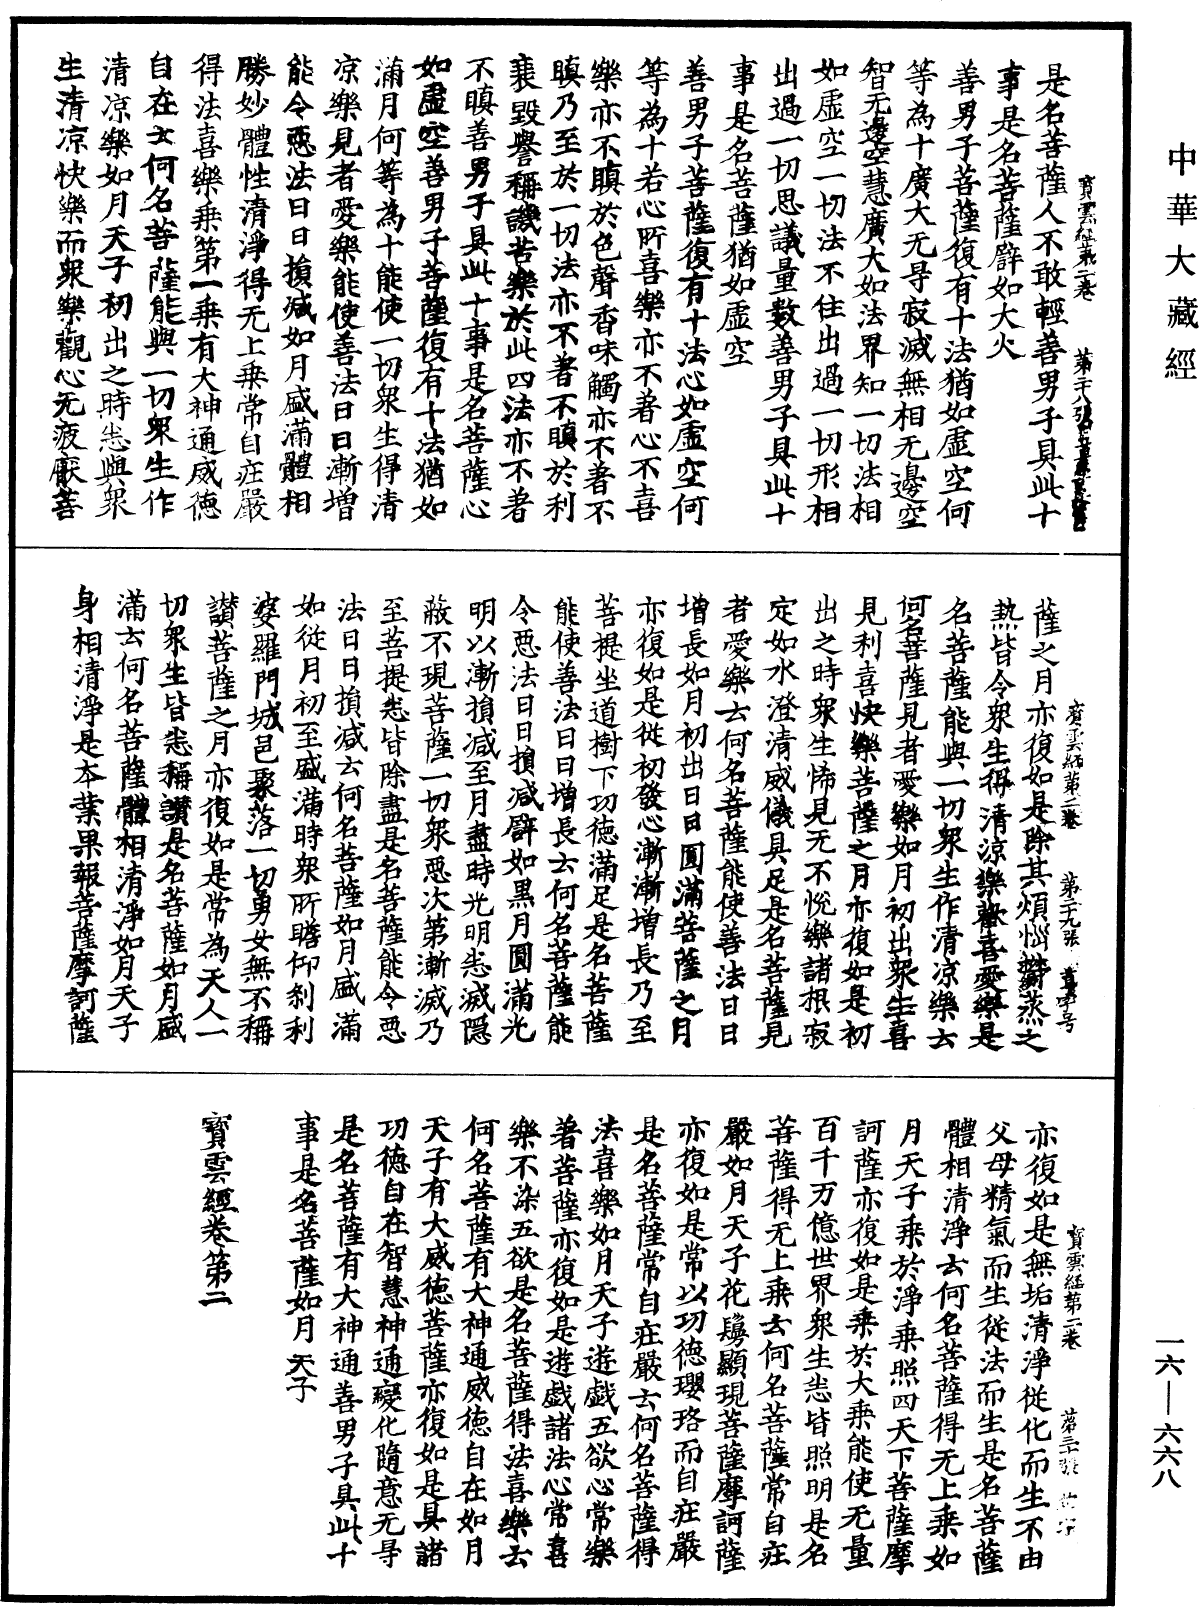 中華大藏經
是名菩薩人不敢輕善男子具此十
事是名菩薩譬如大火
善男子菩薩復有十法猶如虛空何
等為十廣大无㝵寂滅無相无邊空
智无邊空慧廣大如法界知一切法相
如虛空一切法不住出過一切形相
出過一切思議量數善男子具此十
事是名菩薩猶如虛空
善男子菩薩復有十法心如虛空何
等為十若心所喜樂亦不著心不喜
樂亦不瞋於色聲香味觸亦不著不
瞋乃至於一切法亦不著不瞋於利
衰毀譽稱譏苦樂於此四法亦不著
不瞋善男子具此十事是名菩薩心
如虛空善男子菩薩復有十法猶如
滿月何等為十能使一切眾生得清
凉樂見者愛樂能使善法日日漸增
能令惡法日日損減如月盛滿體相
勝妙體性清淨得无上乘常自莊嚴
得法喜樂乘第一乘有大神通威德
自在云何名菩薩能與一切眾生作
清凉樂如月天子初出之時悉與眾
生清凉快樂而眾樂觀心无疲厭菩
寶雲經第二卷 第二十八張
薩之月亦復如是除其煩惱欝蒸之
熱皆令眾生得清凉樂歡喜愛樂是
名菩薩能與一切眾生作清凉樂云
何名菩薩見者愛樂如月初出眾生喜
見利喜快樂菩薩之月亦復如是初
出之時眾生怖見无不悅樂諸根寂
定如水澄清威儀具足是名菩薩見
者愛樂云何名菩薩能使善法日日
增長如月初出日日圓滿菩薩之月
亦復如是從初發心漸漸增長乃至
菩提坐道樹下功德滿足是名菩薩
能使善法日日增長云何名菩薩能
令惡法日日損減譬如黑月圓滿光
明以漸損減至月盡時光明悉滅隱
蔽不現菩薩一切眾惡次第漸滅乃
至菩提悉皆除盡是名菩薩能令惡
法日日損減云何名菩薩如月盛滿
如從月初至盛滿時眾所瞻仰剎利
婆羅門城邑聚落一切男女無不稱
讃菩薩之月亦復如是常為天人一
切眾生皆悉稱讃是名菩薩如月盛
滿云何名菩薩體相清淨如月天子
身相清淨是本業果報菩薩摩訶薩
寶雲經第二卷 第二十九張
亦復如是無垢清淨從化而生不由
父母精氣而生從法而生是名菩薩
體相清淨云何名菩薩得无上乘如
月天子乘於淨乘照四天下菩薩摩
訶薩亦復如是乘於大乘能使无量
百千万億世界眾生悉皆照明是名
菩薩得无上乘云何名菩薩常自莊
嚴如月天子花鬘顯現菩薩摩訶薩
亦復如是常以功德瓔珞而自莊嚴
是名菩薩常自莊嚴云何名菩薩得
法喜樂如月天子遊戲五欲心常樂
著菩薩亦復如是遊戲諸法心常喜
樂不染五欲是名菩薩得法喜樂云
何名菩薩有大神通威德自在如月
天子有大威德菩薩亦復如是具諸
功德自在智慧神通變化隨意无㝵
是名菩薩有大神通善男子具此十
事是名菩薩如月天子
寶雲經卷第二
寶雲經第二卷 第三十張
一六—六六八